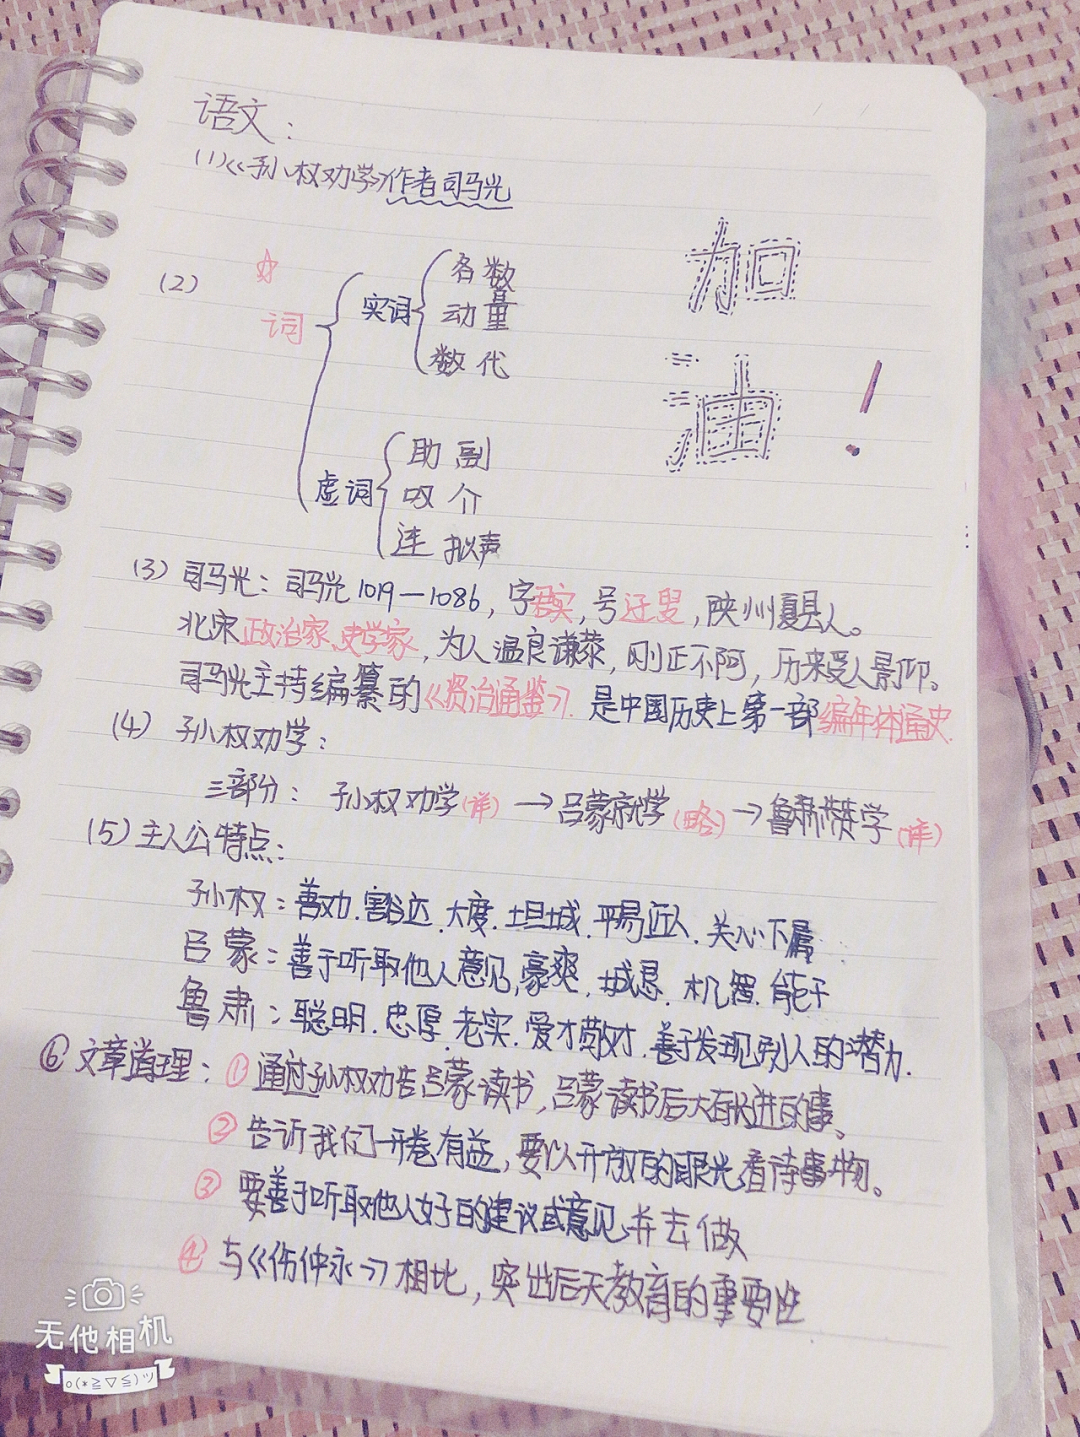 语文:
(1)《孙权劝学》作者司马光
(2)
词
实词
名 数
动 量
数 代
虚词
助 副
叹 介
连 拟声
加
油!
(3) 司马光: 司马光1019—1086, 字君实, 号迂叟, 陕州夏县人。
北宋政治家、史学家, 为人温良谦恭, 刚正不阿, 历来受人景仰。
司马光主持编纂的《资治通鉴》. 是中国历史上第一部编年体通史.
(4) 孙权劝学:
三部分: 孙权劝学(详) →吕蒙就学(略)→鲁肃赞学(详)
(5)主人公特点:
孙权: 善劝. 豁达. 大度. 坦诚. 平易近人. 关心下属
吕蒙: 善于听取他人意见, 豪爽. 诚恳. 机智. 能干
鲁肃: 聪明. 忠厚. 老实. 爱才敬才. 善于发现别人的潜力.
⑥ 文章道理: ① 通过孙权劝告吕蒙读书, 吕蒙读书后大有长进的事。
② 告诉我们开卷有益, 要以开放的眼光看待事物。
③ 要善于听取他人好的建议或意见并去做
④ 与《伤仲永》相比, 突出后天教育的重要性
无他相机
o(*≧▽≦)ツ